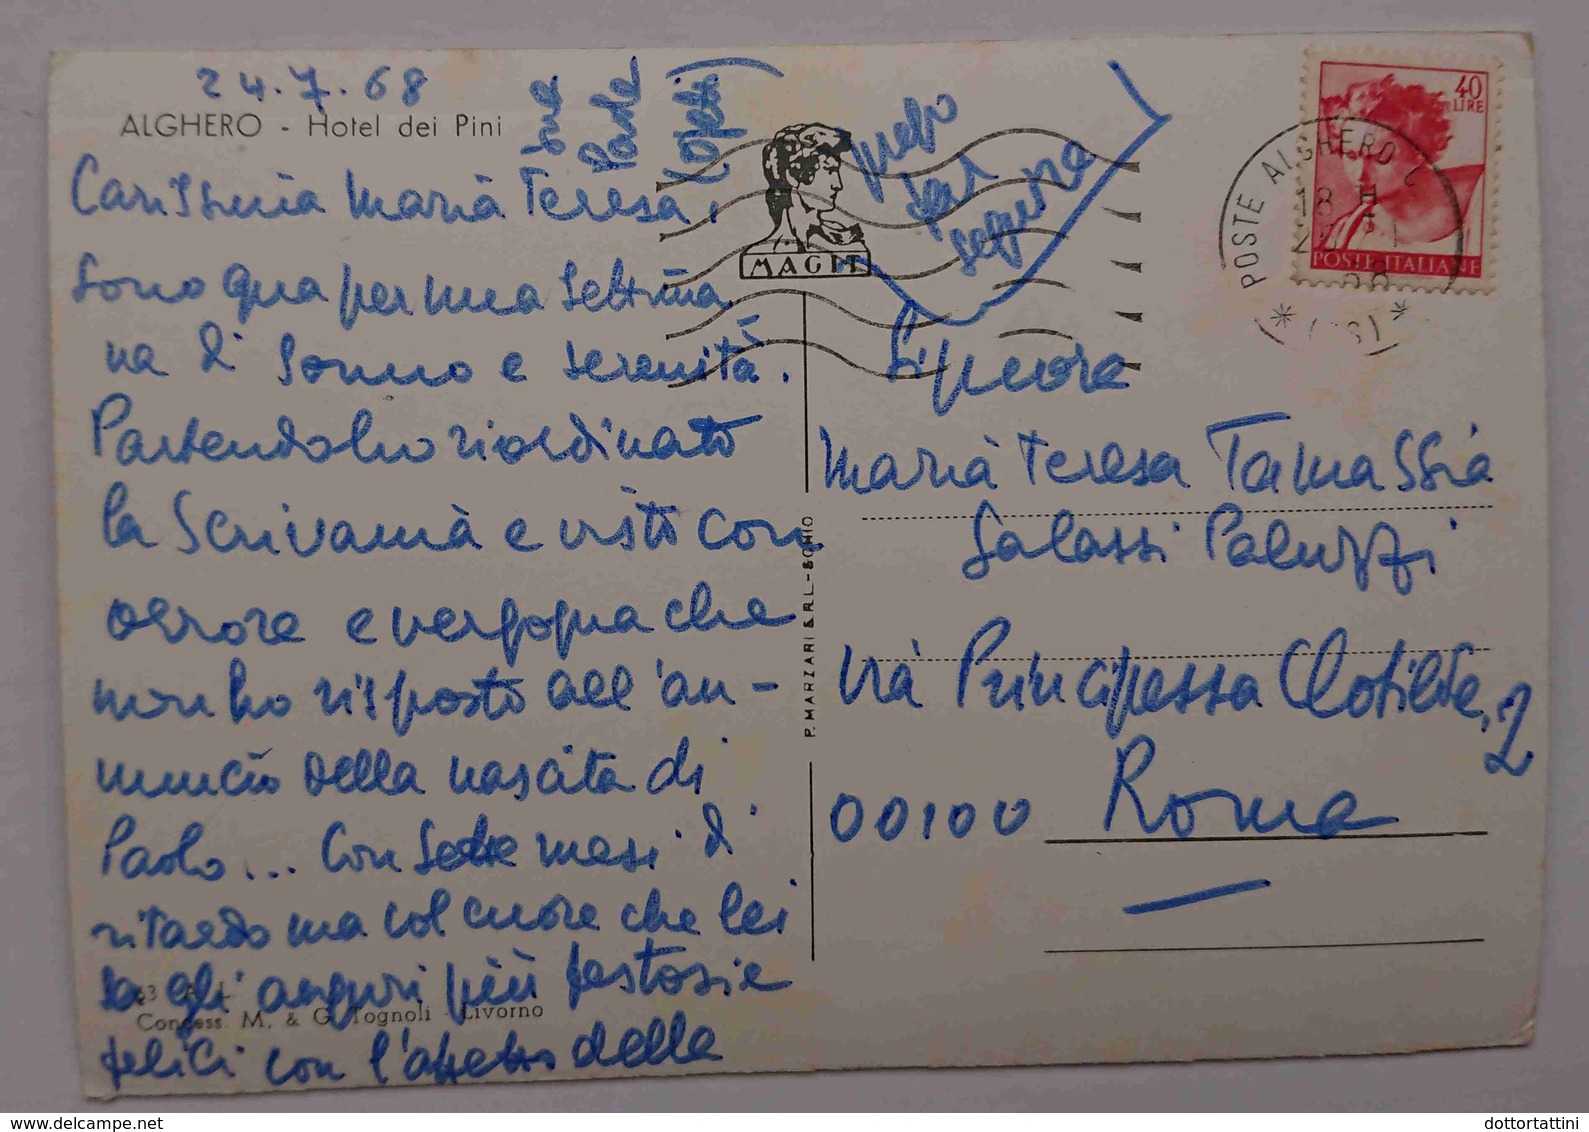 24.7.68
ALGHERO - Hotel dei Pini
Carissima Maria Teresa,
sono qua per una settima
na di sonno e serenità.
Partendo ho riordinato
la scrivania e visto con
orrore e vergogna che
non ho risposto all'an-
nuncio della nascita di
Paolo... Con sette mesi di
ritardo ma col cuore che lei
sa gli auguri più festosi e
felici con l'affetto della
sua
Paola
prego
far
seguire
MAGIT
40
LIRE
POSTE ITALIANE
POSTE ALGHERO
18 H
68
(SS)
Signora
Maria Teresa Tamassia
Galassi Paluzzi
Via Principessa Clotilde, 2
00100 Roma
P. MARZARI S.R.L.-SCHIO
Concess. M. & G. Tognoli - Livorno
www.delcampe.net
dottortattini